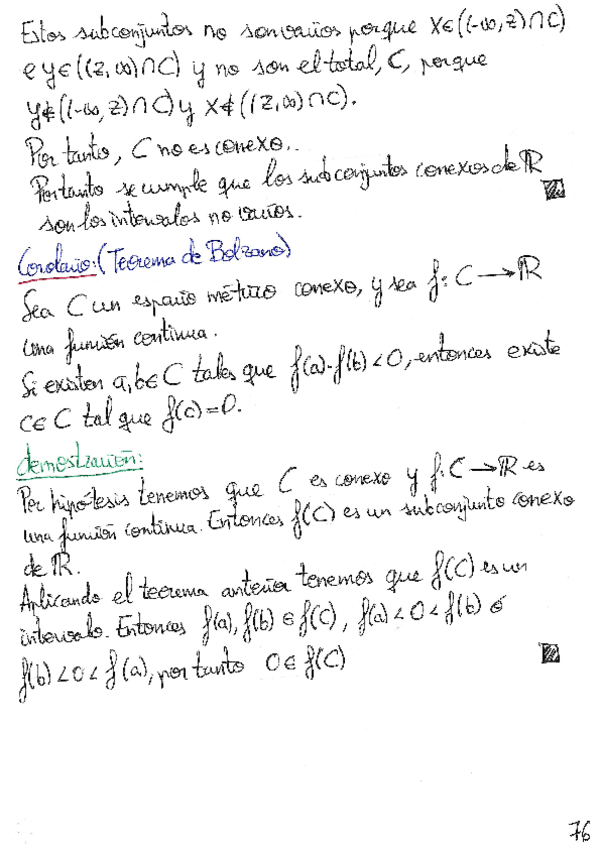 Estos subconjuntos no son vacíos porque x∈((-∞,z)∩C)
e y∈((z,∞)∩C) y no son el total, C, porque
y∉((-∞,z)∩C) y x∉((z,∞)∩C).
Por tanto, C no es conexo.
Por tanto se cumple que los subconjuntos conexos de ℝ
son los intervalos no vacíos.
Corolario: (Teorema de Bolzano)
Sea C un espacio métrico conexo, y sea f: C→ℝ
una función continua.
Si existen a, b∈C tales que f(a)·f(b)<0, entonces existe
c∈C tal que f(c)=0.
demostración:
Por hipótesis tenemos que C es conexo y f: C→ℝ es
una función continua. Entonces f(C) es un subconjunto conexo
de ℝ.
Aplicando el teorema anterior tenemos que f(C) es un
intervalo. Entonces f(a), f(b)∈f(C), f(a)<0<f(b) ó
f(b)<0<f(a), por tanto 0∈f(C)
76